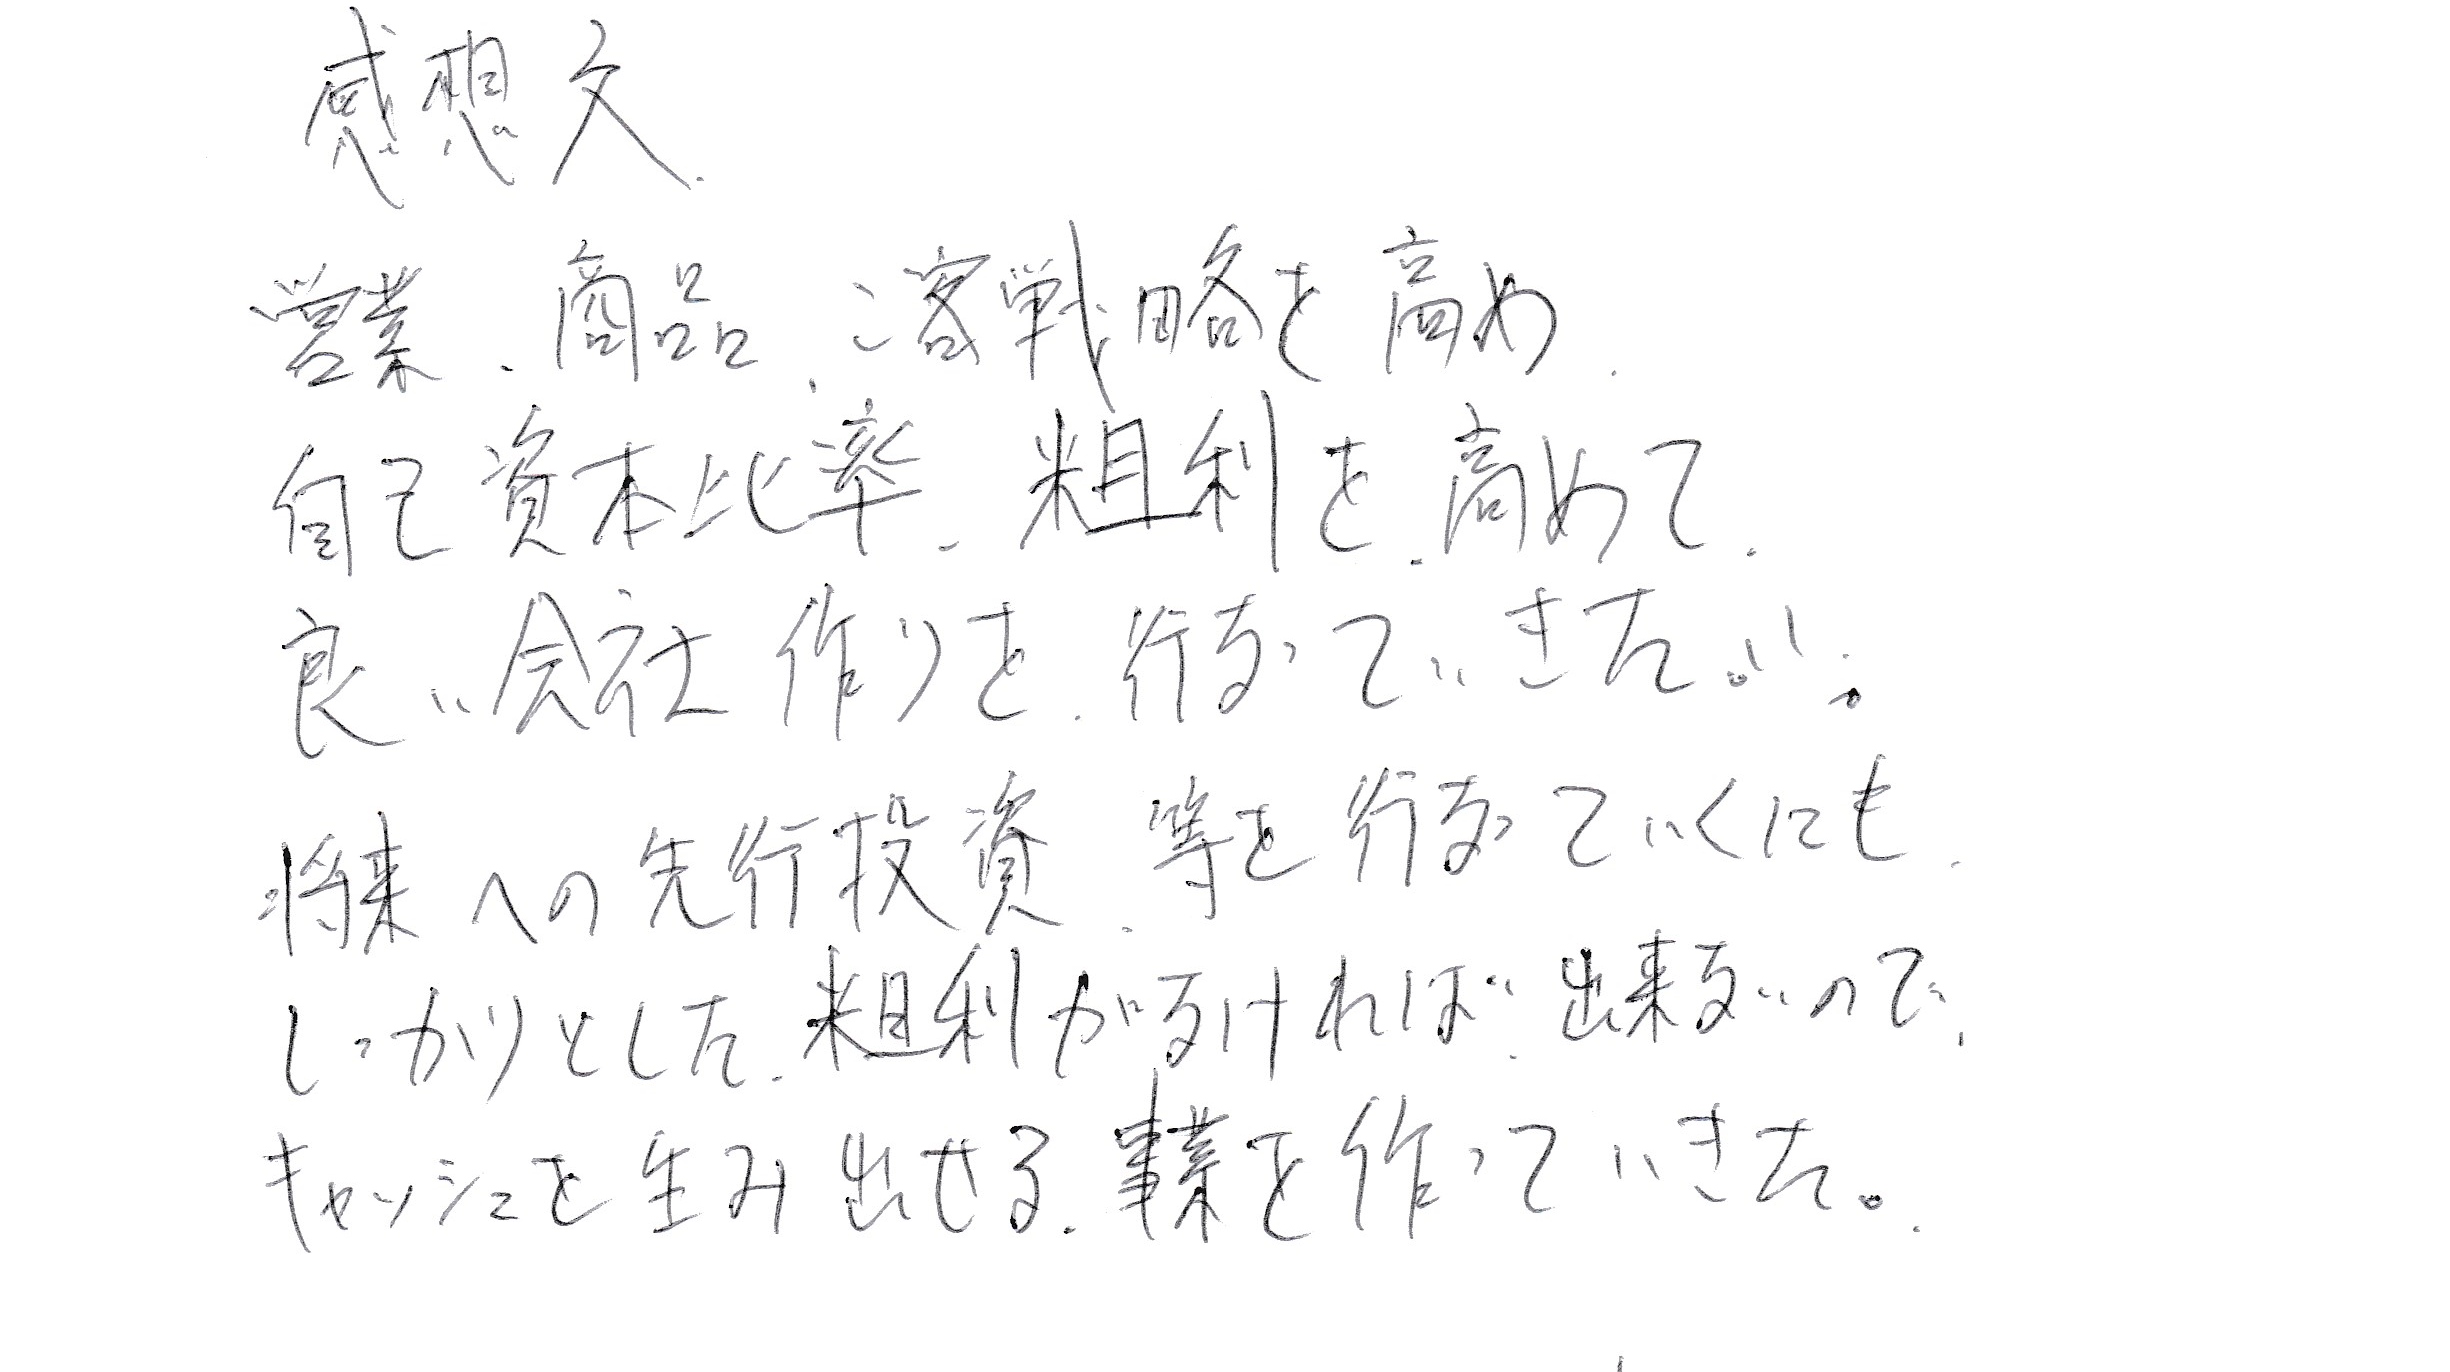 感想文
営業、商品、客戦略を高め、
自己資本比率、粗利を、高めて、
良い会社作りを、行なっていきたい。
将来への先行投資、等を行なっていくにも、
しっかりとした、粗利がなければ、出来ないので、
キャッシュを生み出せる、事業を作っていきた。